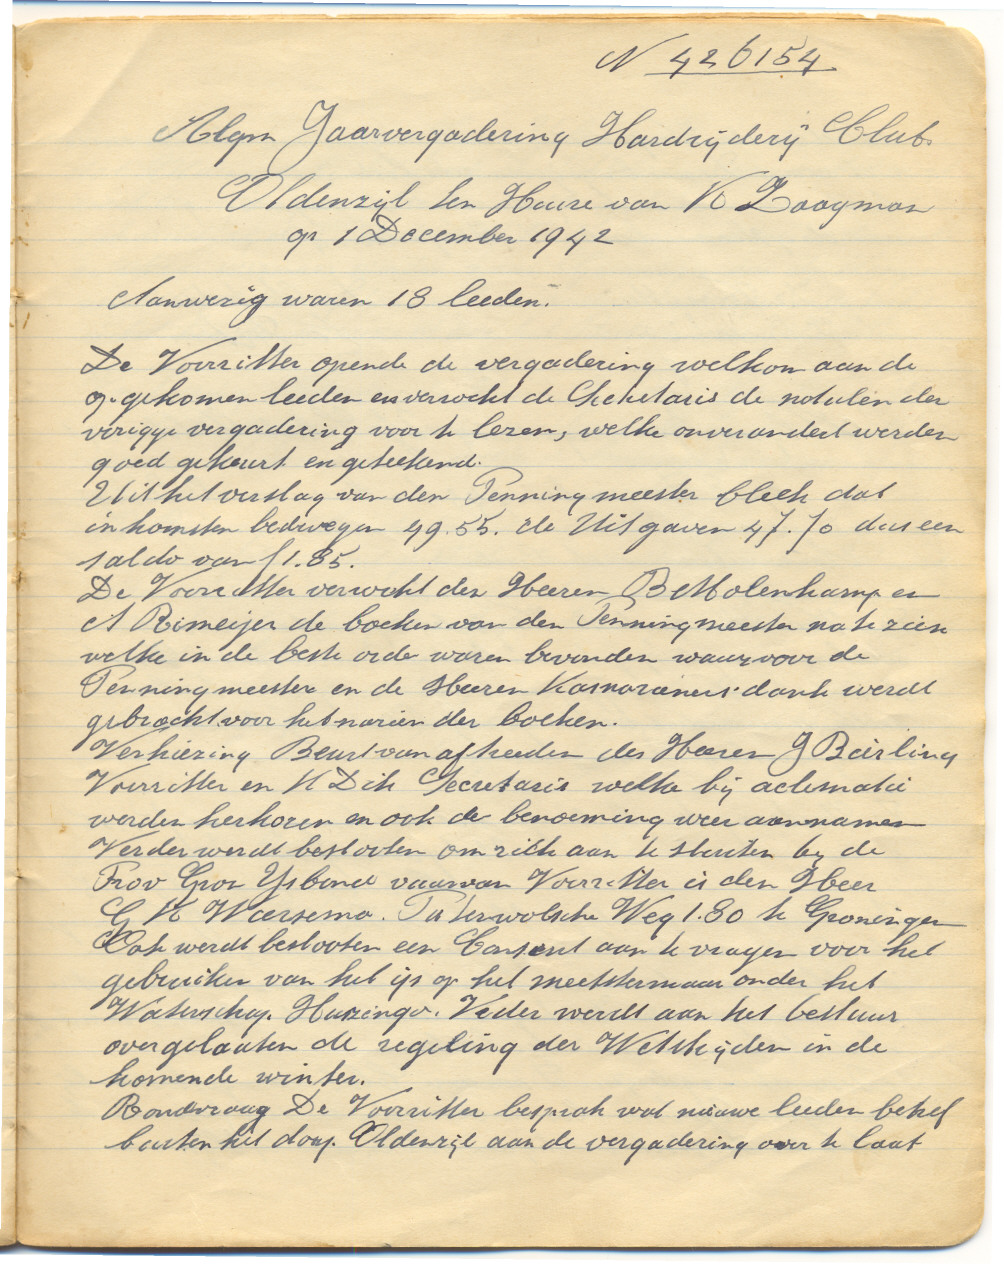 N 426154
Algm Jaarvergadering Hardrijderij Club
Oldenzijl ten Huize van K Zaagman
op 1 December 1942
Aanwezig waren 18 leeden.
De Voorzitter opende de vergadering welkom aan de
opgekomen leeden en verzocht de Secretaris de notulen der
vorigge vergadering voor te lezen, welke onverandert werden
goed gekeurt en geteekend.
Uit het verslag van den Penningmeester bleek dat
inkomsten bedroegen 49.55. de Uitgaven 47.70 dus een
saldo van f 1.85.
De Voorzitter verzocht den Heeren B Molenkamp en
A Remeijer de boeken van den Penningmeester na te zien
welke in de beste orde waren bevonden waarvoor de
Penningmeester en de Heeren dank werdt
gebracht voor het nazien der boeken.
Verkiezing Beurt van aftreeden des Heeren J Beirling
Voorzitter en K Dik Secretaris welke bij aclematie
werden herkozen en ook de benoeming weer aannamen
Verder werdt beslooten om zich aan te sluiten bij de
Prov Gron Ysbond vaarvan Voorzitter is den Heer
G K Wiersema. Paterwolsche Weg 180 te Groningen
Ook werdt beslooten een Consent aan te vragen voor het
gebruiken van het ijs op het meetstermaar onder het
Waterschap Hunzingo. Veder werdt aan het bestuur
overgelaaten de regeling der Wetstrijden in de
komende winter.
Rondvraag De Voorzitter besprak wat nieuwe leeden betref
buiten het dorp Oldenzijl aan de vergadering over te laat